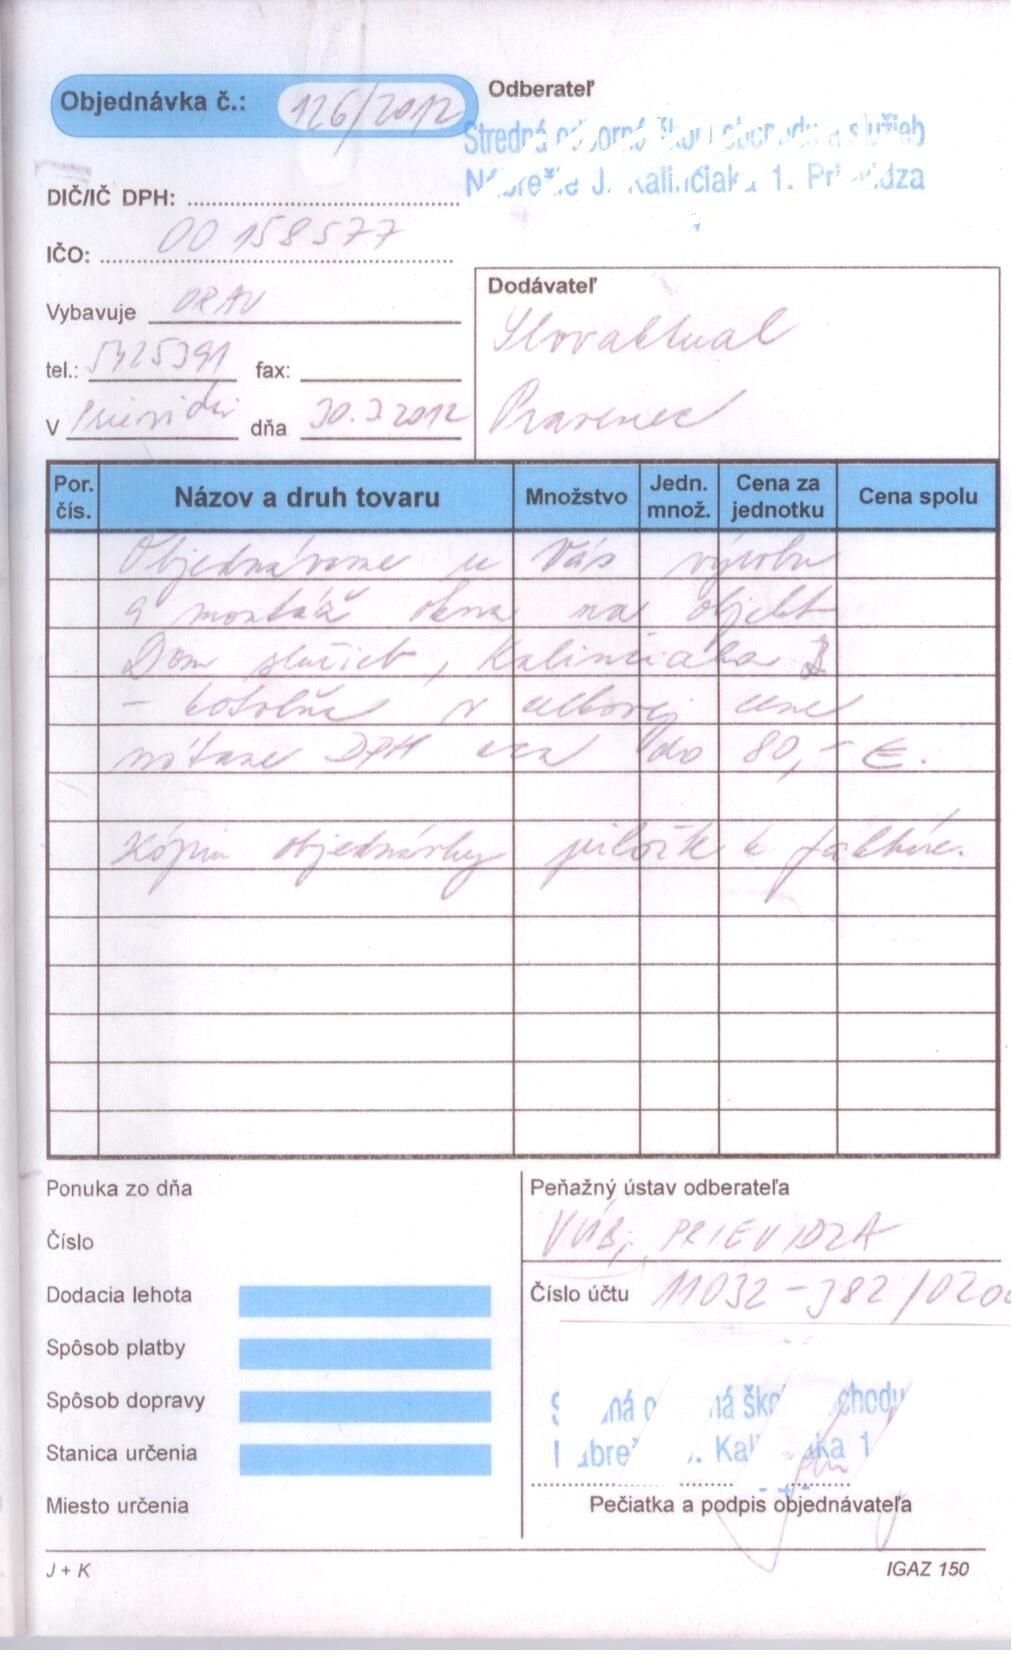 Objednávka č.: 126/2012
Odberateľ
Stredná odborná škola obchodu a služieb
Nábrežie J. Kalinčiaka 1. Prievidza
DIČ/IČ DPH:
IČO: 00158577
Vybavuje
tel.: 5425391 fax:
V Prievidzi dňa 30.3.2012
Dodávateľ
Slovaktual
Pravenec
Por. čís. Názov a druh tovaru Množstvo Jedn. množ. Cena za jednotku Cena spolu
Objednávame u Vás výrobu
a montáž okna na objekt
Dom služieb, Kalinčiaka
- kotolňa v celkovej cene
vrátane DPH cca do 80,- €.
Kópiu objednávky priložte k faktúre.
Ponuka zo dňa
Číslo
Dodacia lehota
Spôsob platby
Spôsob dopravy
Stanica určenia
Miesto určenia
Peňažný ústav odberateľa
VÚB, PRIEVIDZA
Číslo účtu 11032-382/0200
Kalinčiaka 1
Pečiatka a podpis objednávateľa
J + K
IGAZ 150